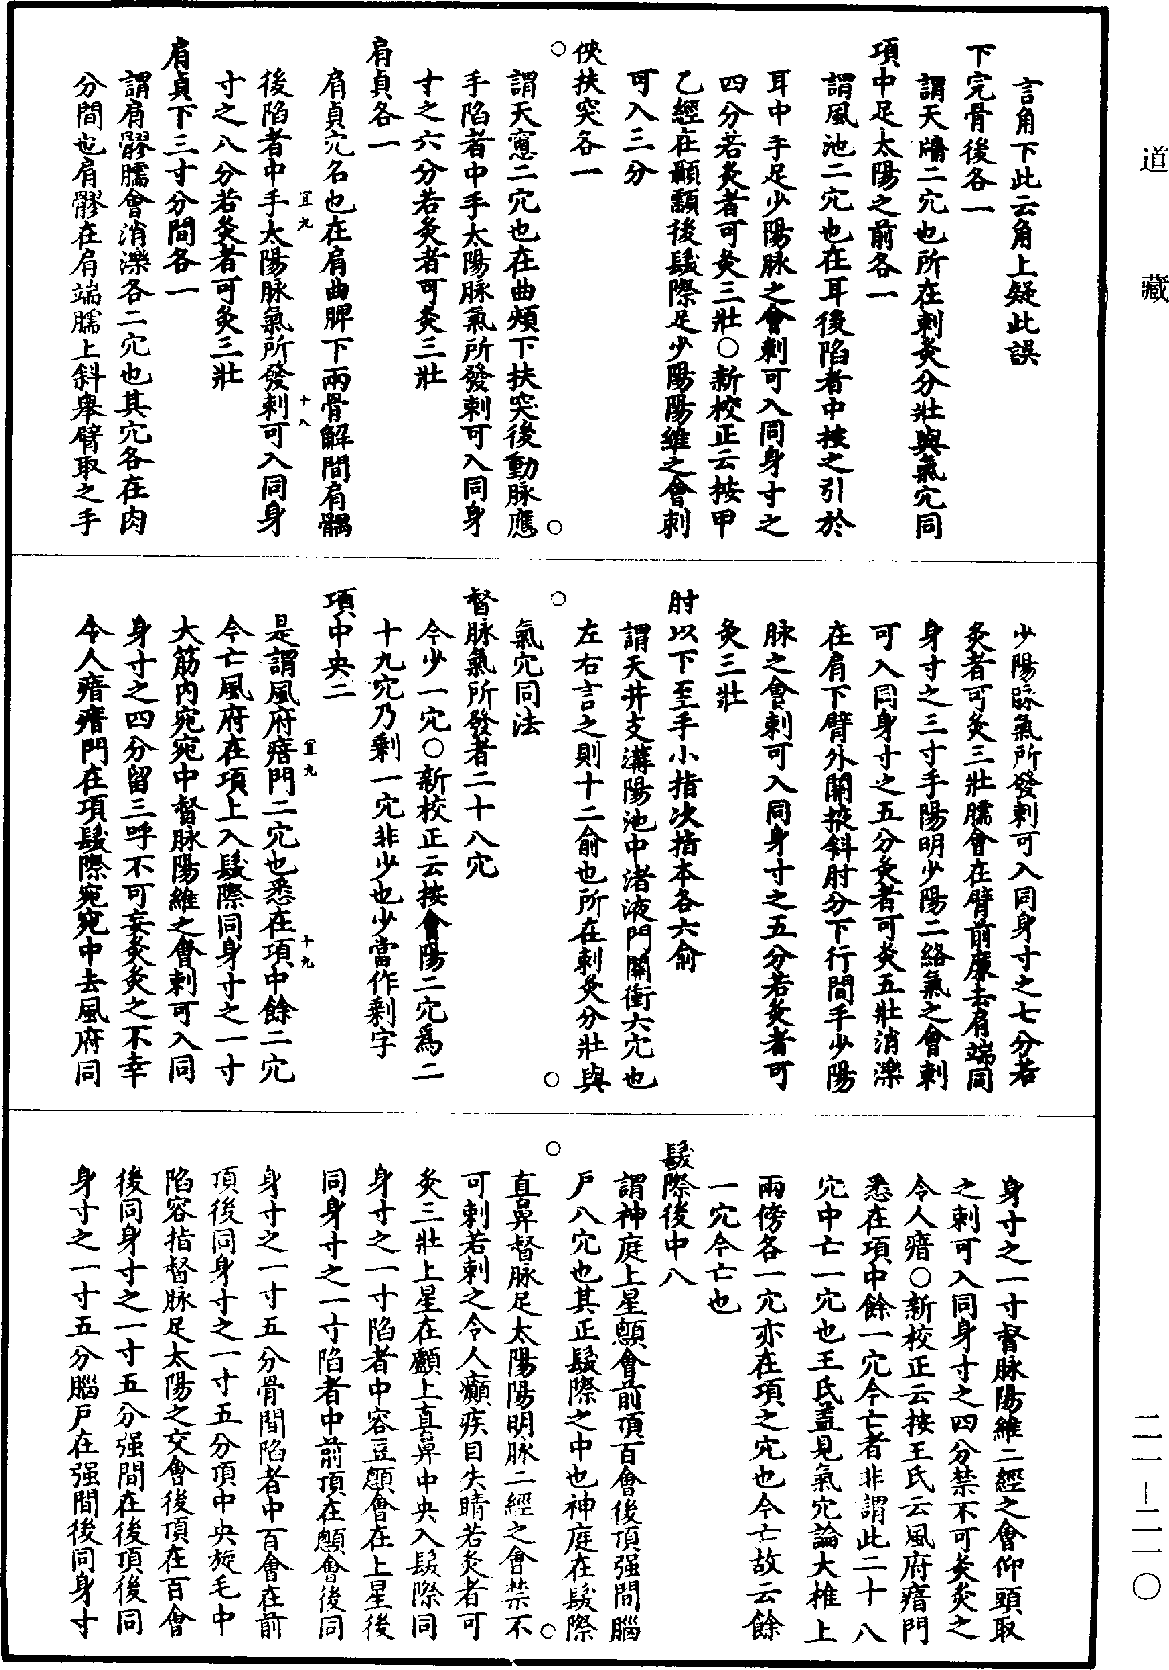 道藏
言角下此云角上疑此誤
下完骨後各一
謂天牖二穴也所在刺灸分壯與氣穴同
項中足太陽之前各一
謂風池二穴也在耳後陷者中按之引於
耳中手足少陽脉之會刺可入同身寸之
四分若灸者可灸三壯○新校正云按甲
乙經在顳顬後髮際足少陽陽維之會刺
可入三分
俠扶突各一
○
○
謂天窻二穴也在曲頰下扶突後動脉應
手陷者中手太陽脉氣所發刺可入同身
寸之六分若灸者可灸三壯
肩貞各一
肩貞穴名也在肩曲脾下兩骨解間肩髃
宜九
十八
後陷者中手太陽脉氣所發刺可入同身
寸之八分若灸者可灸三壯
肩貞下三寸分間各一
謂肩髎臑會消濼各二穴也其穴各在肉
分間也肩髎在肩端臑上斜舉臂取之手
少陽脉氣所發刺可入同身寸之七分若
灸者可灸三壯臑會在臂前廉去肩端同
身寸之三寸手陽明少陽二絡氣之會刺
可入同身寸之五分灸者可灸五壯消濼
在肩下臂外關掖斜肘分下行間手少陽
脉之會刺可入同身寸之五分若灸者可
灸三壯
肘以下至手小指次指本各六俞
謂天井支溝陽池中渚液門關衝六穴也
左右言之則十二俞也所在刺灸分壯與
○
○
氣穴同法
督脉氣所發者二十八穴
今少一穴○新校正云按會陽二穴爲二
十九穴乃剩一穴非少也少當作剩字
項中央二
宜九
十九
是謂風府瘖門二穴也悉在項中餘二穴
今亡風府在項上入髮際同身寸之一寸
大筋內宛宛中督脉陽維之會刺可入同
身寸之四分留三呼不可妄灸灸之不幸
令人瘖瘖門在項髮際宛宛中去風府同
身寸之一寸督脉陽維二經之會仰頭取
之刺可入同身寸之四分禁不可灸灸之
令人瘖○新校正云按王氏云風府瘖門
悉在項中餘一穴今亡者非謂此二十八
穴中亡一穴也王氏蓋見氣穴論大椎上
兩傍各一穴亦在項之穴也今亡故云餘
一穴今亡也
髮際後中八
謂神庭上星顖會前頂百會後頂强間腦
戶八穴也其正髮際之中也神庭在髮際
○
○
直鼻督脉足太陽陽明脉二經之會禁不
可刺若刺之令人癲疾目失睛若灸者可
灸三壯上星在顱上直鼻中央入髮際同
身寸之一寸陷者中容豆顖會在上星後
同身寸之一寸陷者中前頂在顖會後同
身寸之一寸五分骨間陷者中百會在前
頂後同身寸之一寸五分頂中央旋毛中
陷容指督脉足太陽之交會後頂在百會
後同身寸之一寸五分强間在後頂後同
身寸之一寸五分腦戶在强間後同身寸
二一—二一〇